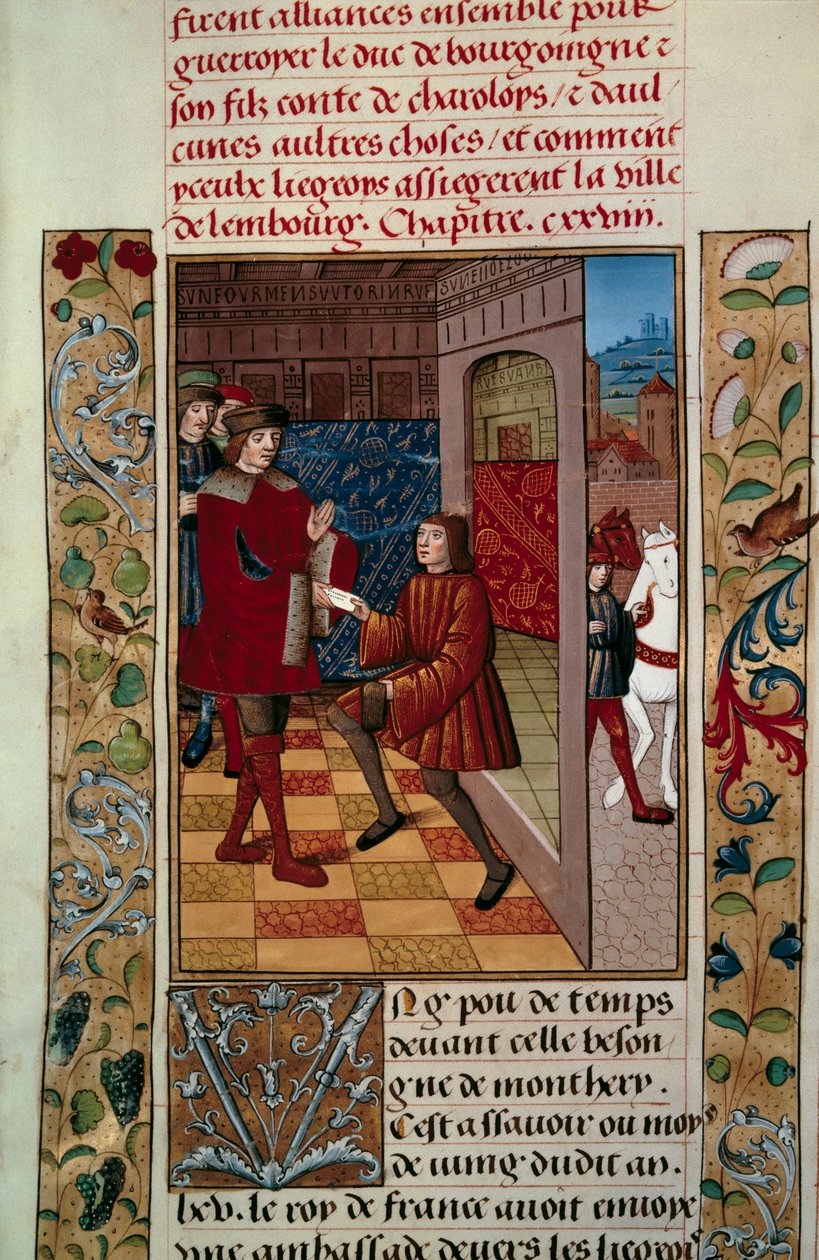 firent alliances ensemble pour
guerroyer le duc de bourgoingne ⁊
son filz conte de charoloys / ⁊ daul /
cunes aultres choses / et comment
yceulx liegeoys assiegerent la ville
de lembourg. Chapitre. cxxviii.
SVNFOVRMENSVVTORINRVE
RVESVANBI
Vng pou de temps
devant celle beson /
gne de monthery.
Cest assavoir ou moys
de iuing dudit an.
lxv. le roy de france avoit envoye
vne ambassade devers les liegeois